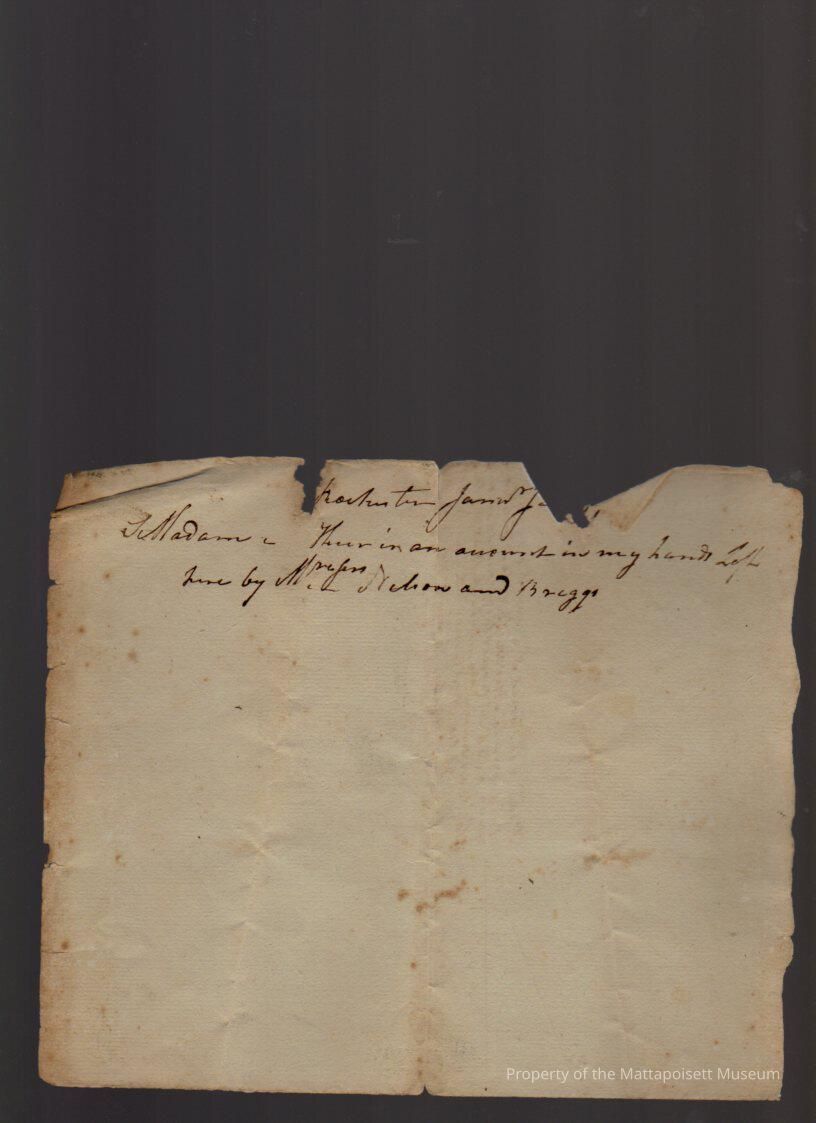 Rochester Janu^r
Madam There is an account in my hands Left
here by Messrs Nelson and Braggs
Property of the Mattapoisett Museum